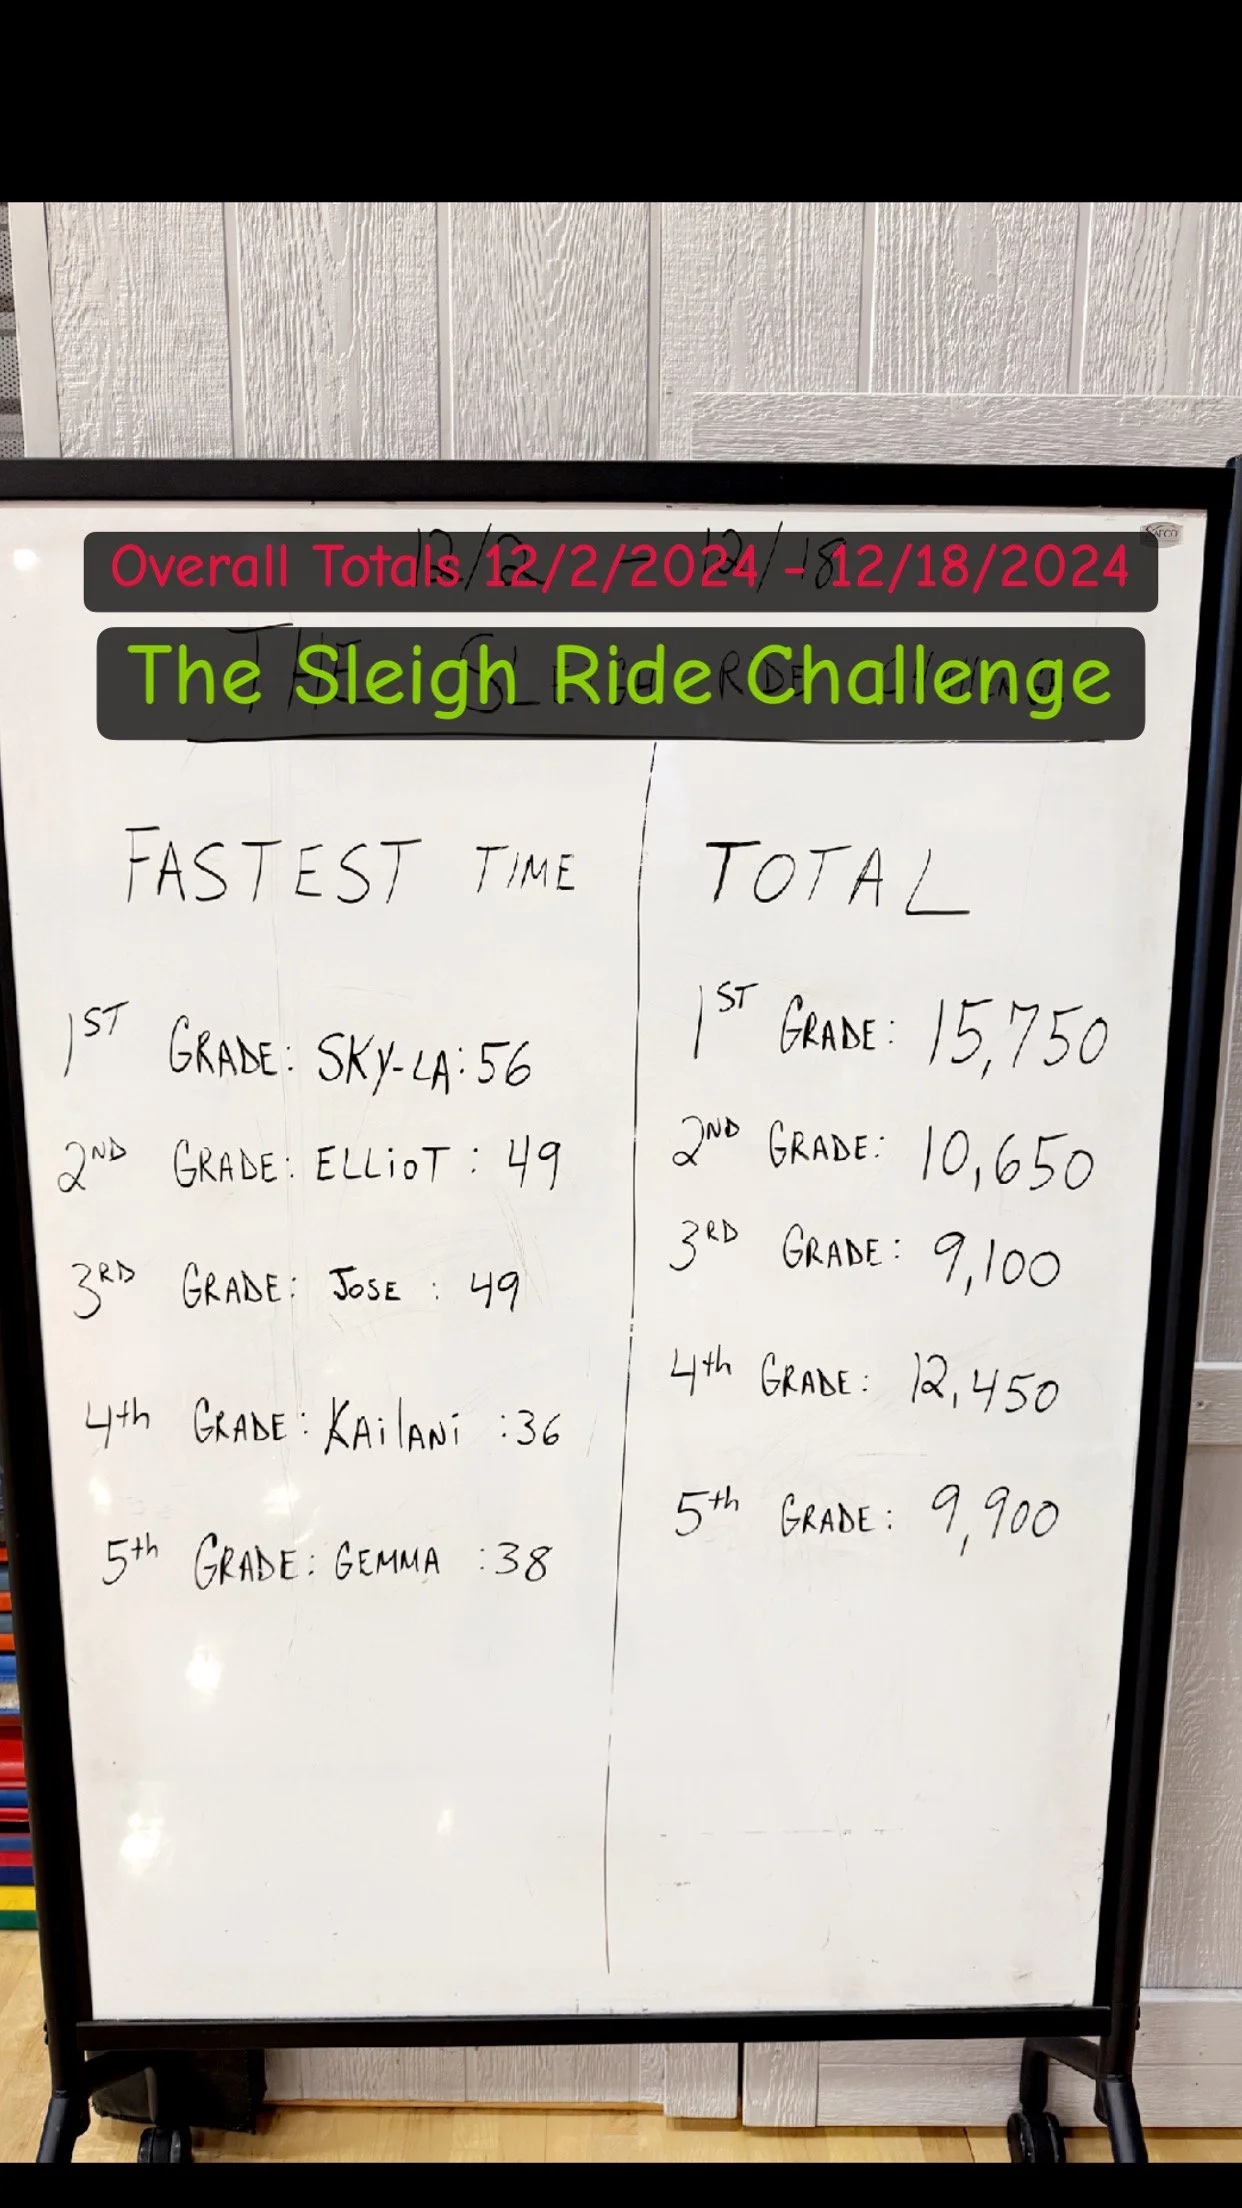 12/2 - 12/18
Overall Totals 12/2/2024 - 12/18/2024
THE SLEIGH RIDE CHALLENGE
The Sleigh Ride Challenge
SAFCO
FASTEST TIME
1ST GRADE: SKY-LA :56
2ND GRADE: ELLiOT : 49
3RD GRADE: JOSE : 49
4th GRADE: KAiLANi :36
5th GRADE: GEMMA :38
TOTAL
1ST GRADE: 15,750
2ND GRADE: 10,650
3RD GRADE: 9,100
4th GRADE: 12,450
5th GRADE: 9,900